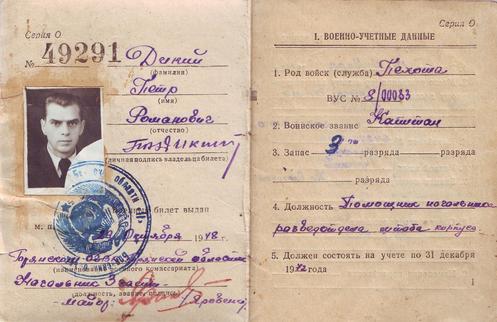 Серия О
№ 49291
Дикий
(фамилия)
Петр
(имя)
Романович
(отчество)
(личная подпись владельца билета)
билет выдан
м. п.
октября 1948
(наименование военного комиссариата)
Начальник 3 части
(должность, звание, подпись)
майор
Серия О
I. ВОЕННО-УЧЕТНЫЕ ДАННЫЕ
1. Род войск (служба) Пехота
ВУС №
2. Воинское звание Капитан
3. Запас разряда разряда
разряда
4. Должность Помощник начальника
разведотдела штаба корпуса
5. Должен состоять на учете по 31 декабря
года
1